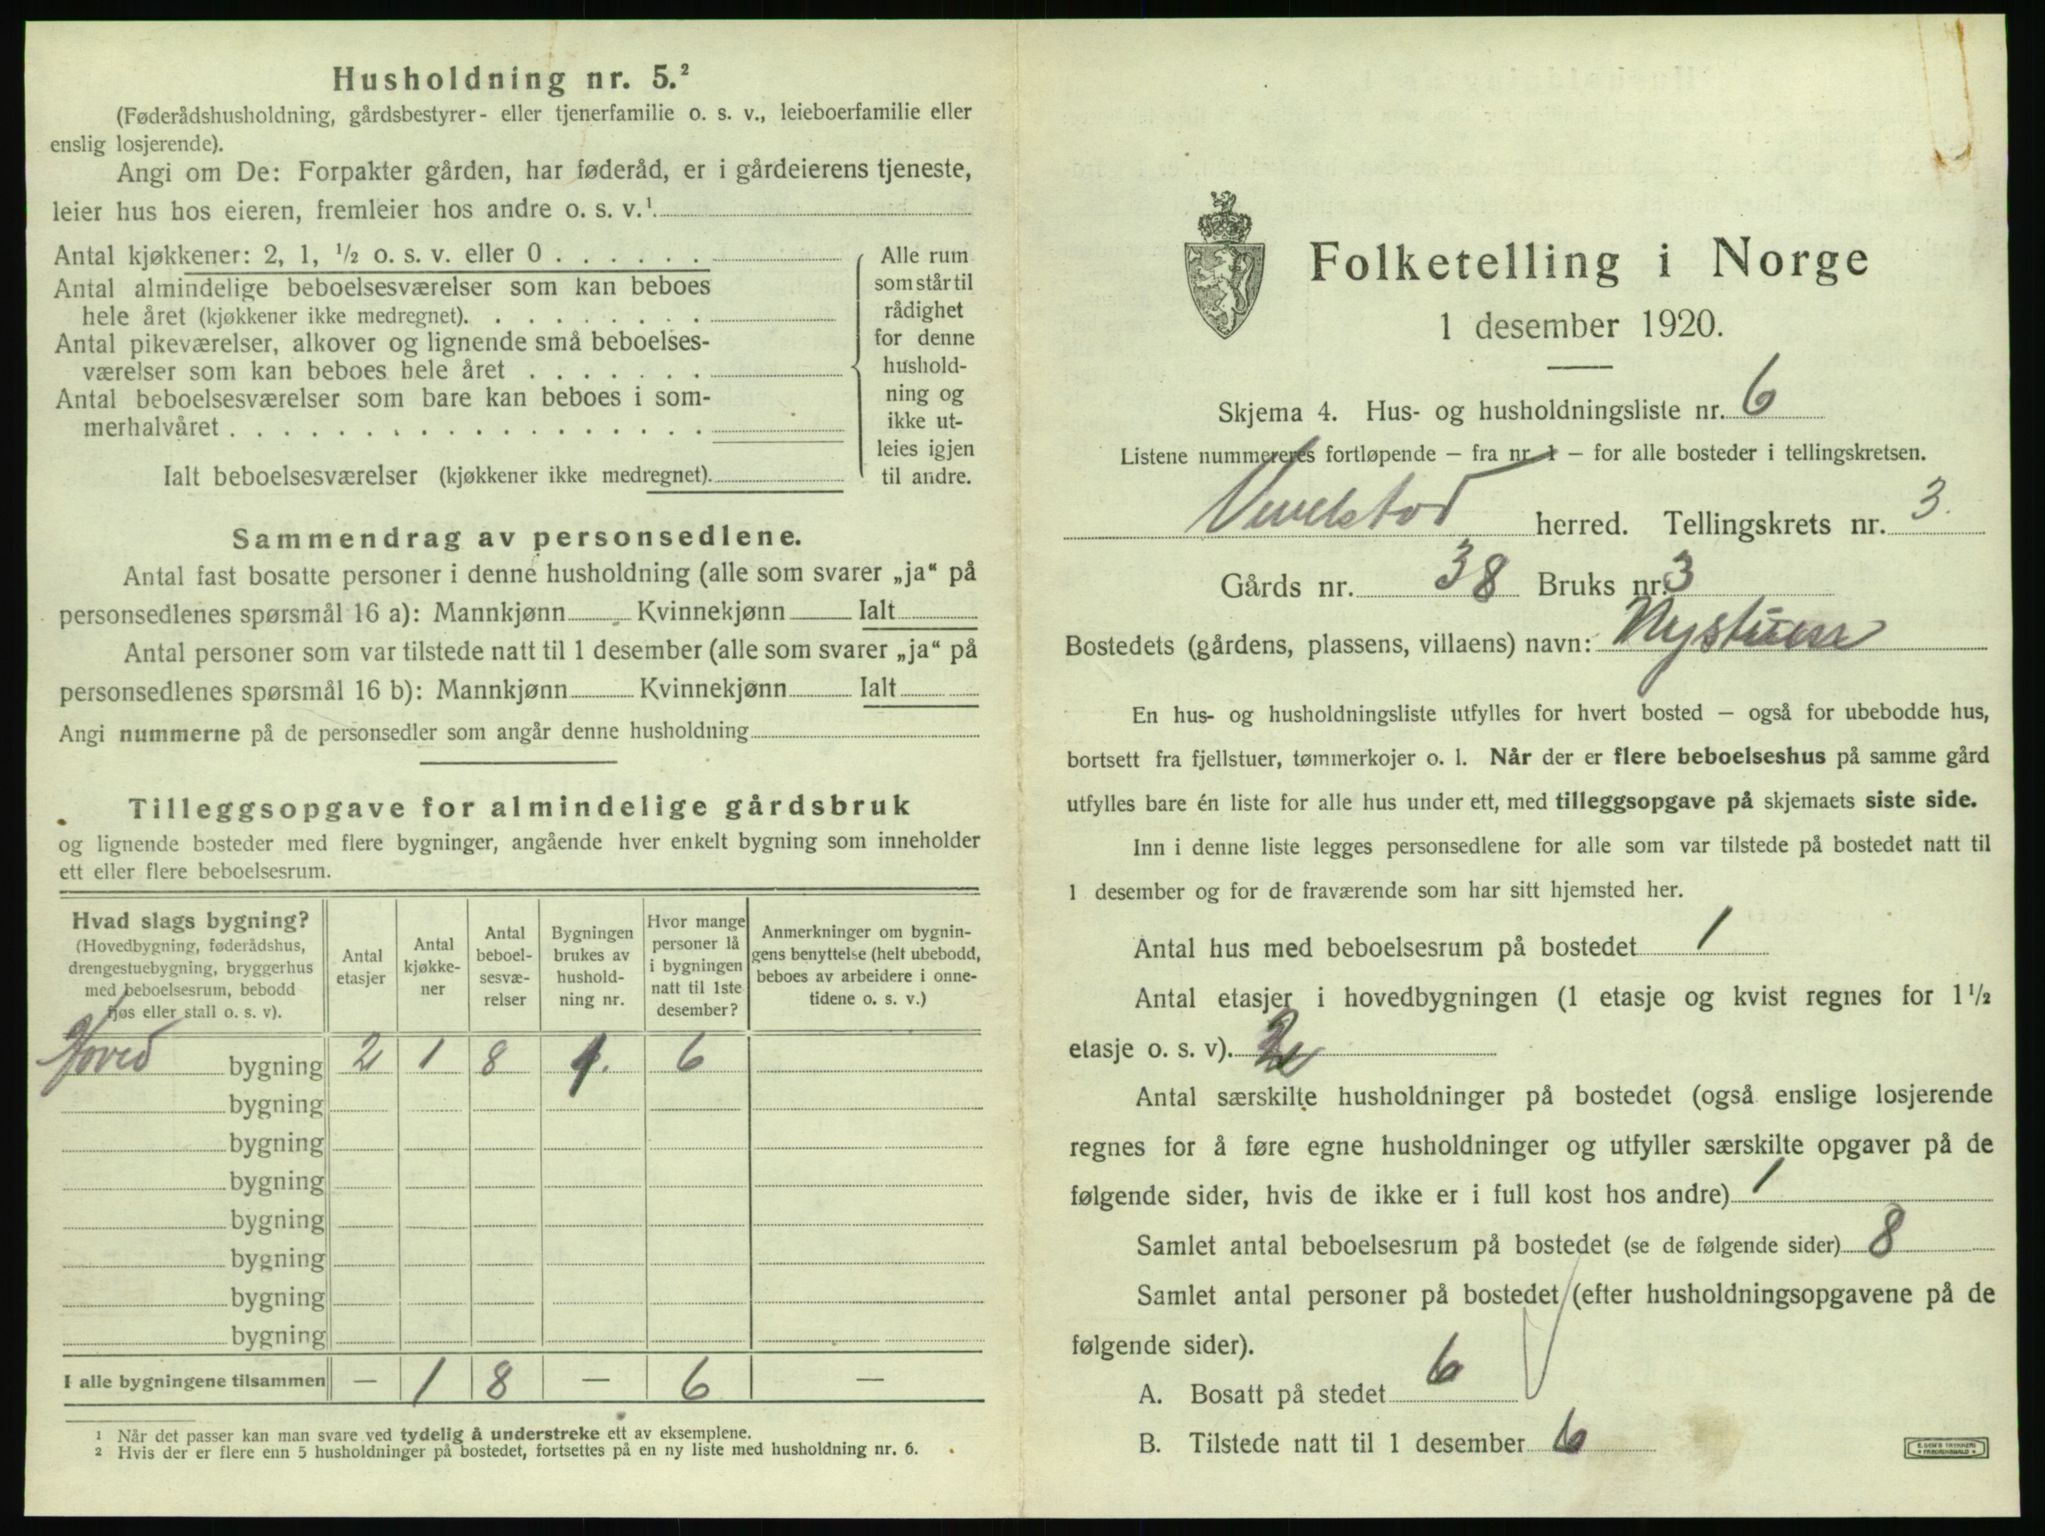 Husholdning nr. 5.²
(Føderådshusholdning, gårdsbestyrer- eller tjenerfamilie o. s. v., leieboerfamilie eller
enslig losjerende).
Angi om De: Forpakter gården, har føderåd, er i gårdeierens tjeneste,
leier hus hos eieren, fremleier hos andre o. s. v.¹
Antal kjøkkener: 2, 1, ½ o. s. v. eller 0
Antal almindelige beboelsesværelser som kan beboes
hele året (kjøkkener ikke medregnet).
Antal pikeværelser, alkover og lignende små beboelses-
værelser som kan beboes hele året
Antal beboelsesværelser som bare kan beboes i som-
merhalvåret
Ialt beboelsesværelser (kjøkkener ikke medregnet).
Alle rum
som står til
rådighet
for denne
hushold-
ning og
ikke ut-
leies igjen
til andre.
Sammendrag av personsedlene.
Antal fast bosatte personer i denne husholdning (alle som svarer „ja“ på
personsedlenes spørsmål 16 a): Mannkjønn Kvinnekjønn Ialt
Antal personer som var tilstede natt til 1 desember (alle som svarer „ja“ på
personsedlenes spørsmål 16 b): Mannkjønn Kvinnekjønn Ialt
Angi nummerne på de personsedler som angår denne husholdning
Tilleggsopgave for almindelige gårdsbruk
og lignende bosteder med flere bygninger, angående hver enkelt bygning som inneholder
ett eller flere beboelsesrum.
Hvad slags bygning?
(Hovedbygning, føderådshus,
drengestuebygning, bryggerhus
med beboelsesrum, bebodd
fjøs eller stall o. s. v).
Antal
etasjer
Antal
kjøkke-
ner
Antal
beboel-
sesvæ-
relser
Bygningen
brukes av
hushold-
ning nr.
Hvor mange
personer lå
i bygningen
natt til 1ste
desember?
Anmerkninger om bygnin-
gens benyttelse (helt ubebodd,
beboes av arbeidere i onne-
tidene o. s. v.)
Hoved bygning 2 1 8 1. 6
bygning
bygning
bygning
bygning
bygning
bygning
bygning
I alle bygningene tilsammen — 1 8 — 6 —
¹ Når det passer kan man svare ved tydelig å understreke ett av eksemplene.
² Hvis der er flere enn 5 husholdninger på bostedet, fortsettes på en ny liste med husholdning nr. 6.
Folketelling i Norge
1 desember 1920.
Skjema 4. Hus- og husholdningsliste nr. 6
Listene nummereres fortløpende — fra nr. 1 — for alle bosteder i tellingskretsen.
Vevelstad herred. Tellingskrets nr. 3.
Gårds nr. 38 Bruks nr. 3
Bostedets (gårdens, plassens, villaens) navn: Nystuen
En hus- og husholdningsliste utfylles for hvert bosted — også for ubebodde hus,
bortsett fra fjellstuer, tømmerkojer o. l. Når der er flere beboelseshus på samme gård
utfylles bare én liste for alle hus under ett, med tilleggsopgave på skjemaets siste side.
Inn i denne liste legges personsedlene for alle som var tilstede på bostedet natt til
1 desember og for de fraværende som har sitt hjemsted her.
Antal hus med beboelsesrum på bostedet 1
Antal etasjer i hovedbygningen (1 etasje og kvist regnes for 1½
etasje o. s. v). 2
Antal særskilte husholdninger på bostedet (også enslige losjerende
regnes for å føre egne husholdninger og utfyller særskilte opgaver på de
følgende sider, hvis de ikke er i full kost hos andre) 1
Samlet antal beboelsesrum på bostedet (se de følgende sider) 8
Samlet antal personer på bostedet (efter husholdningsopgavene på de
følgende sider).
A. Bosatt på stedet 6
B. Tilstede natt til 1 desember 6